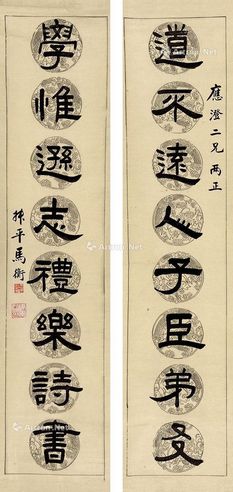 應澄二兄 兩正
道不遠人子臣弟友
學惟遜志禮樂詩書
叔平馬衡
Artron.Net